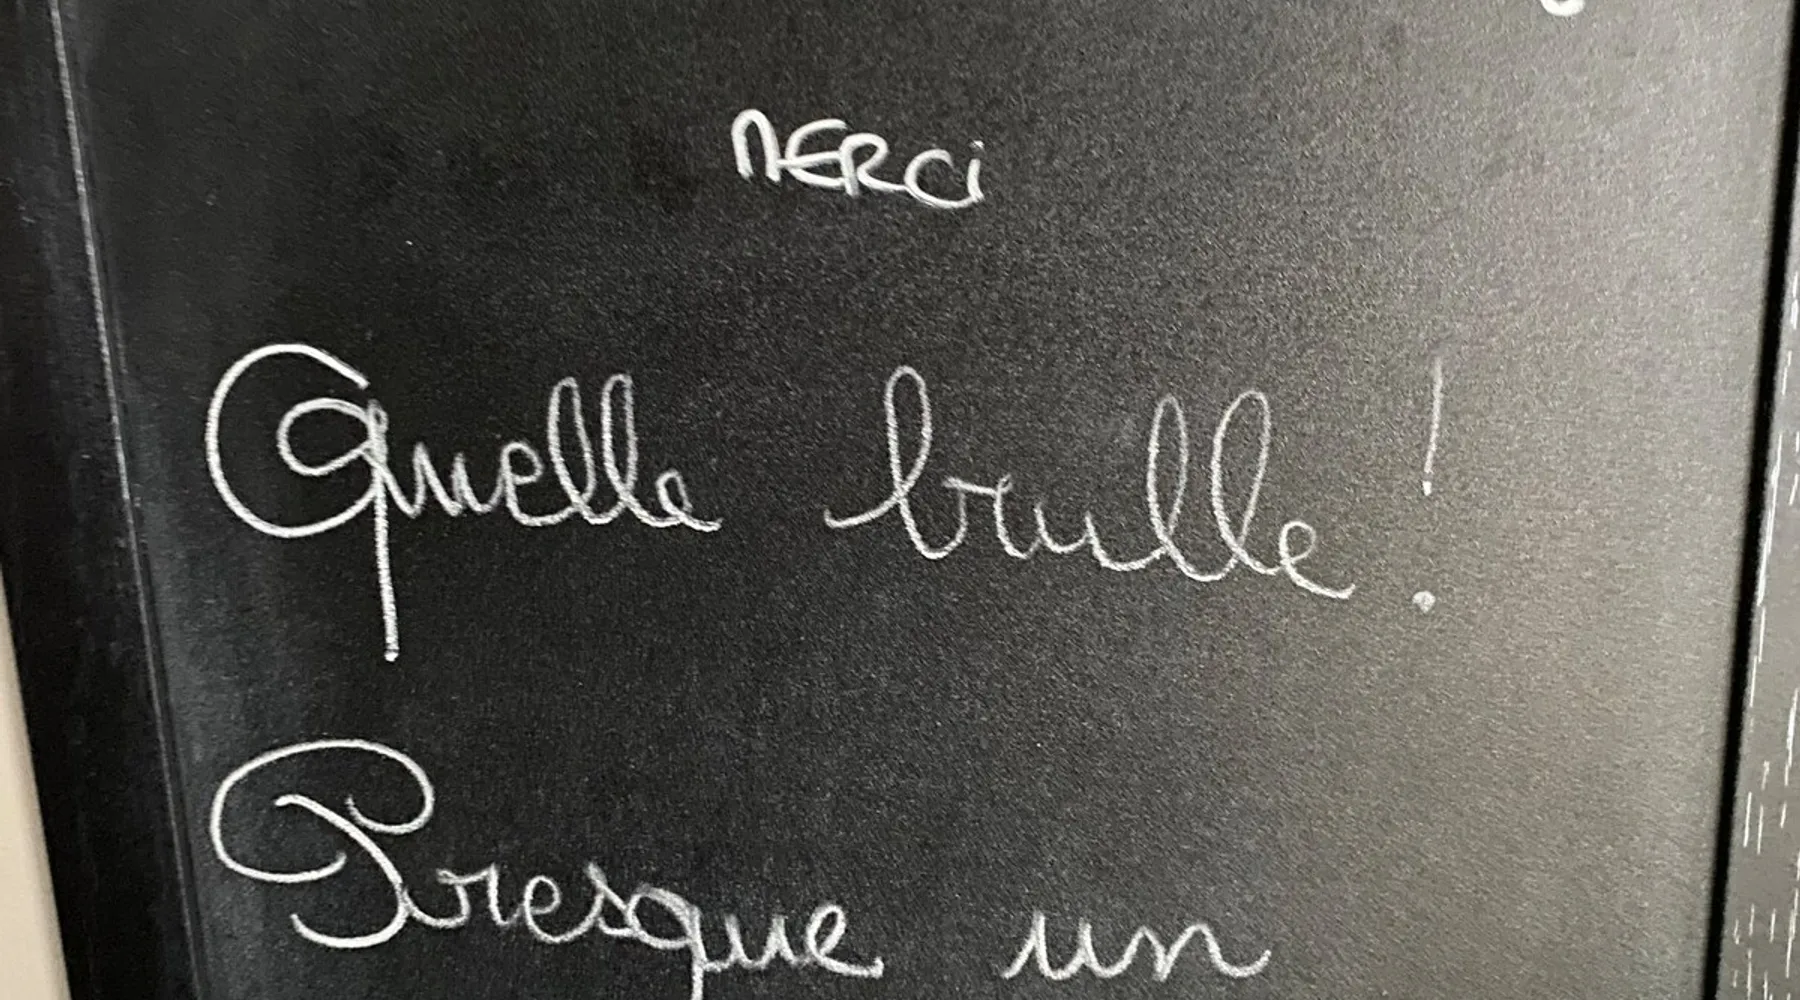 MERCi
Quelle brulle !
Presque un